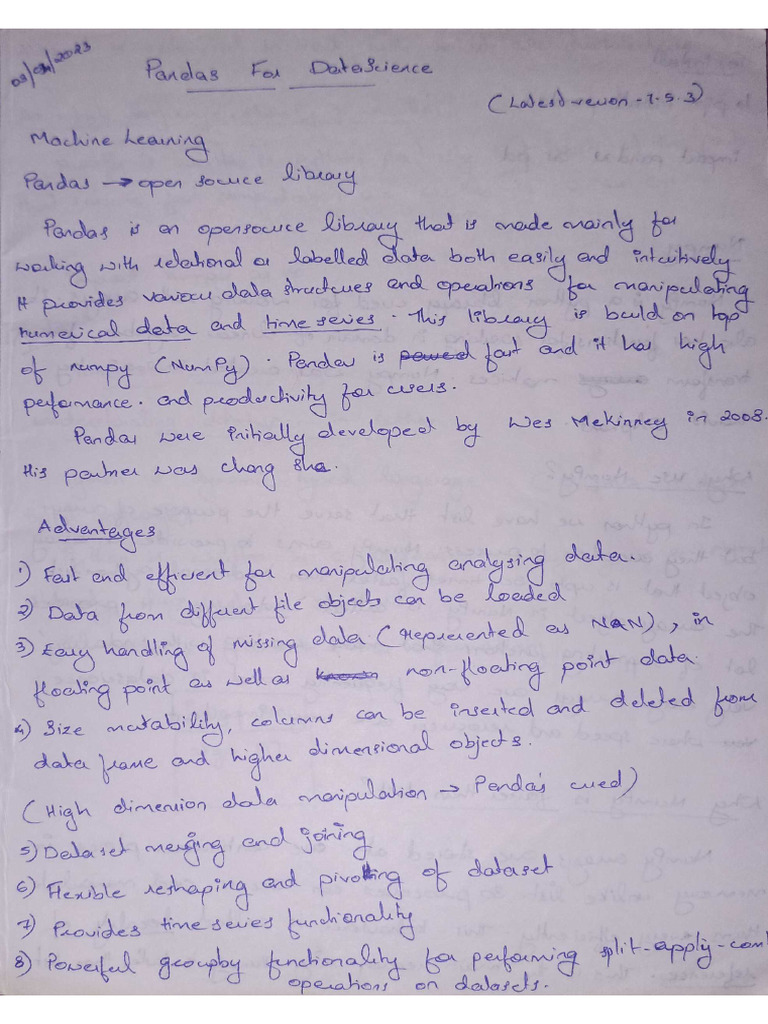 03/04/2023
Pandas For DataScience
(Latest version - 1.5.3)
Machine Learning
Pandas → open source library
Pandas is an opensource library that is made mainly for
working with relational or labelled data both easily and intuitively
It provides various data structures and operations for manipulating
numerical data and time series. This library is build on top
of numpy (NumPy). Pandas is fast and it has high
performance. and productivity for users.
Pandas were initially developed by Wes McKinney in 2008.
His partner was chang she.
Advantages
1) Fast and efficient for manipulating analysing data.
2) Data from different file objects can be loaded
3) Easy handling of missing data (Represented as NAN), in
floating point as well as non-floating point data.
4) Size mutability, columns can be inserted and deleted from
data frame and higher dimensional objects.
(High dimension data manipulation → Panda's used)
5) Dataset merging and joining
6) Flexible reshaping and pivoting of dataset
7) Provides time series functionality
8) Powerful groupby functionality for performing split-apply-com
operations on datasets.